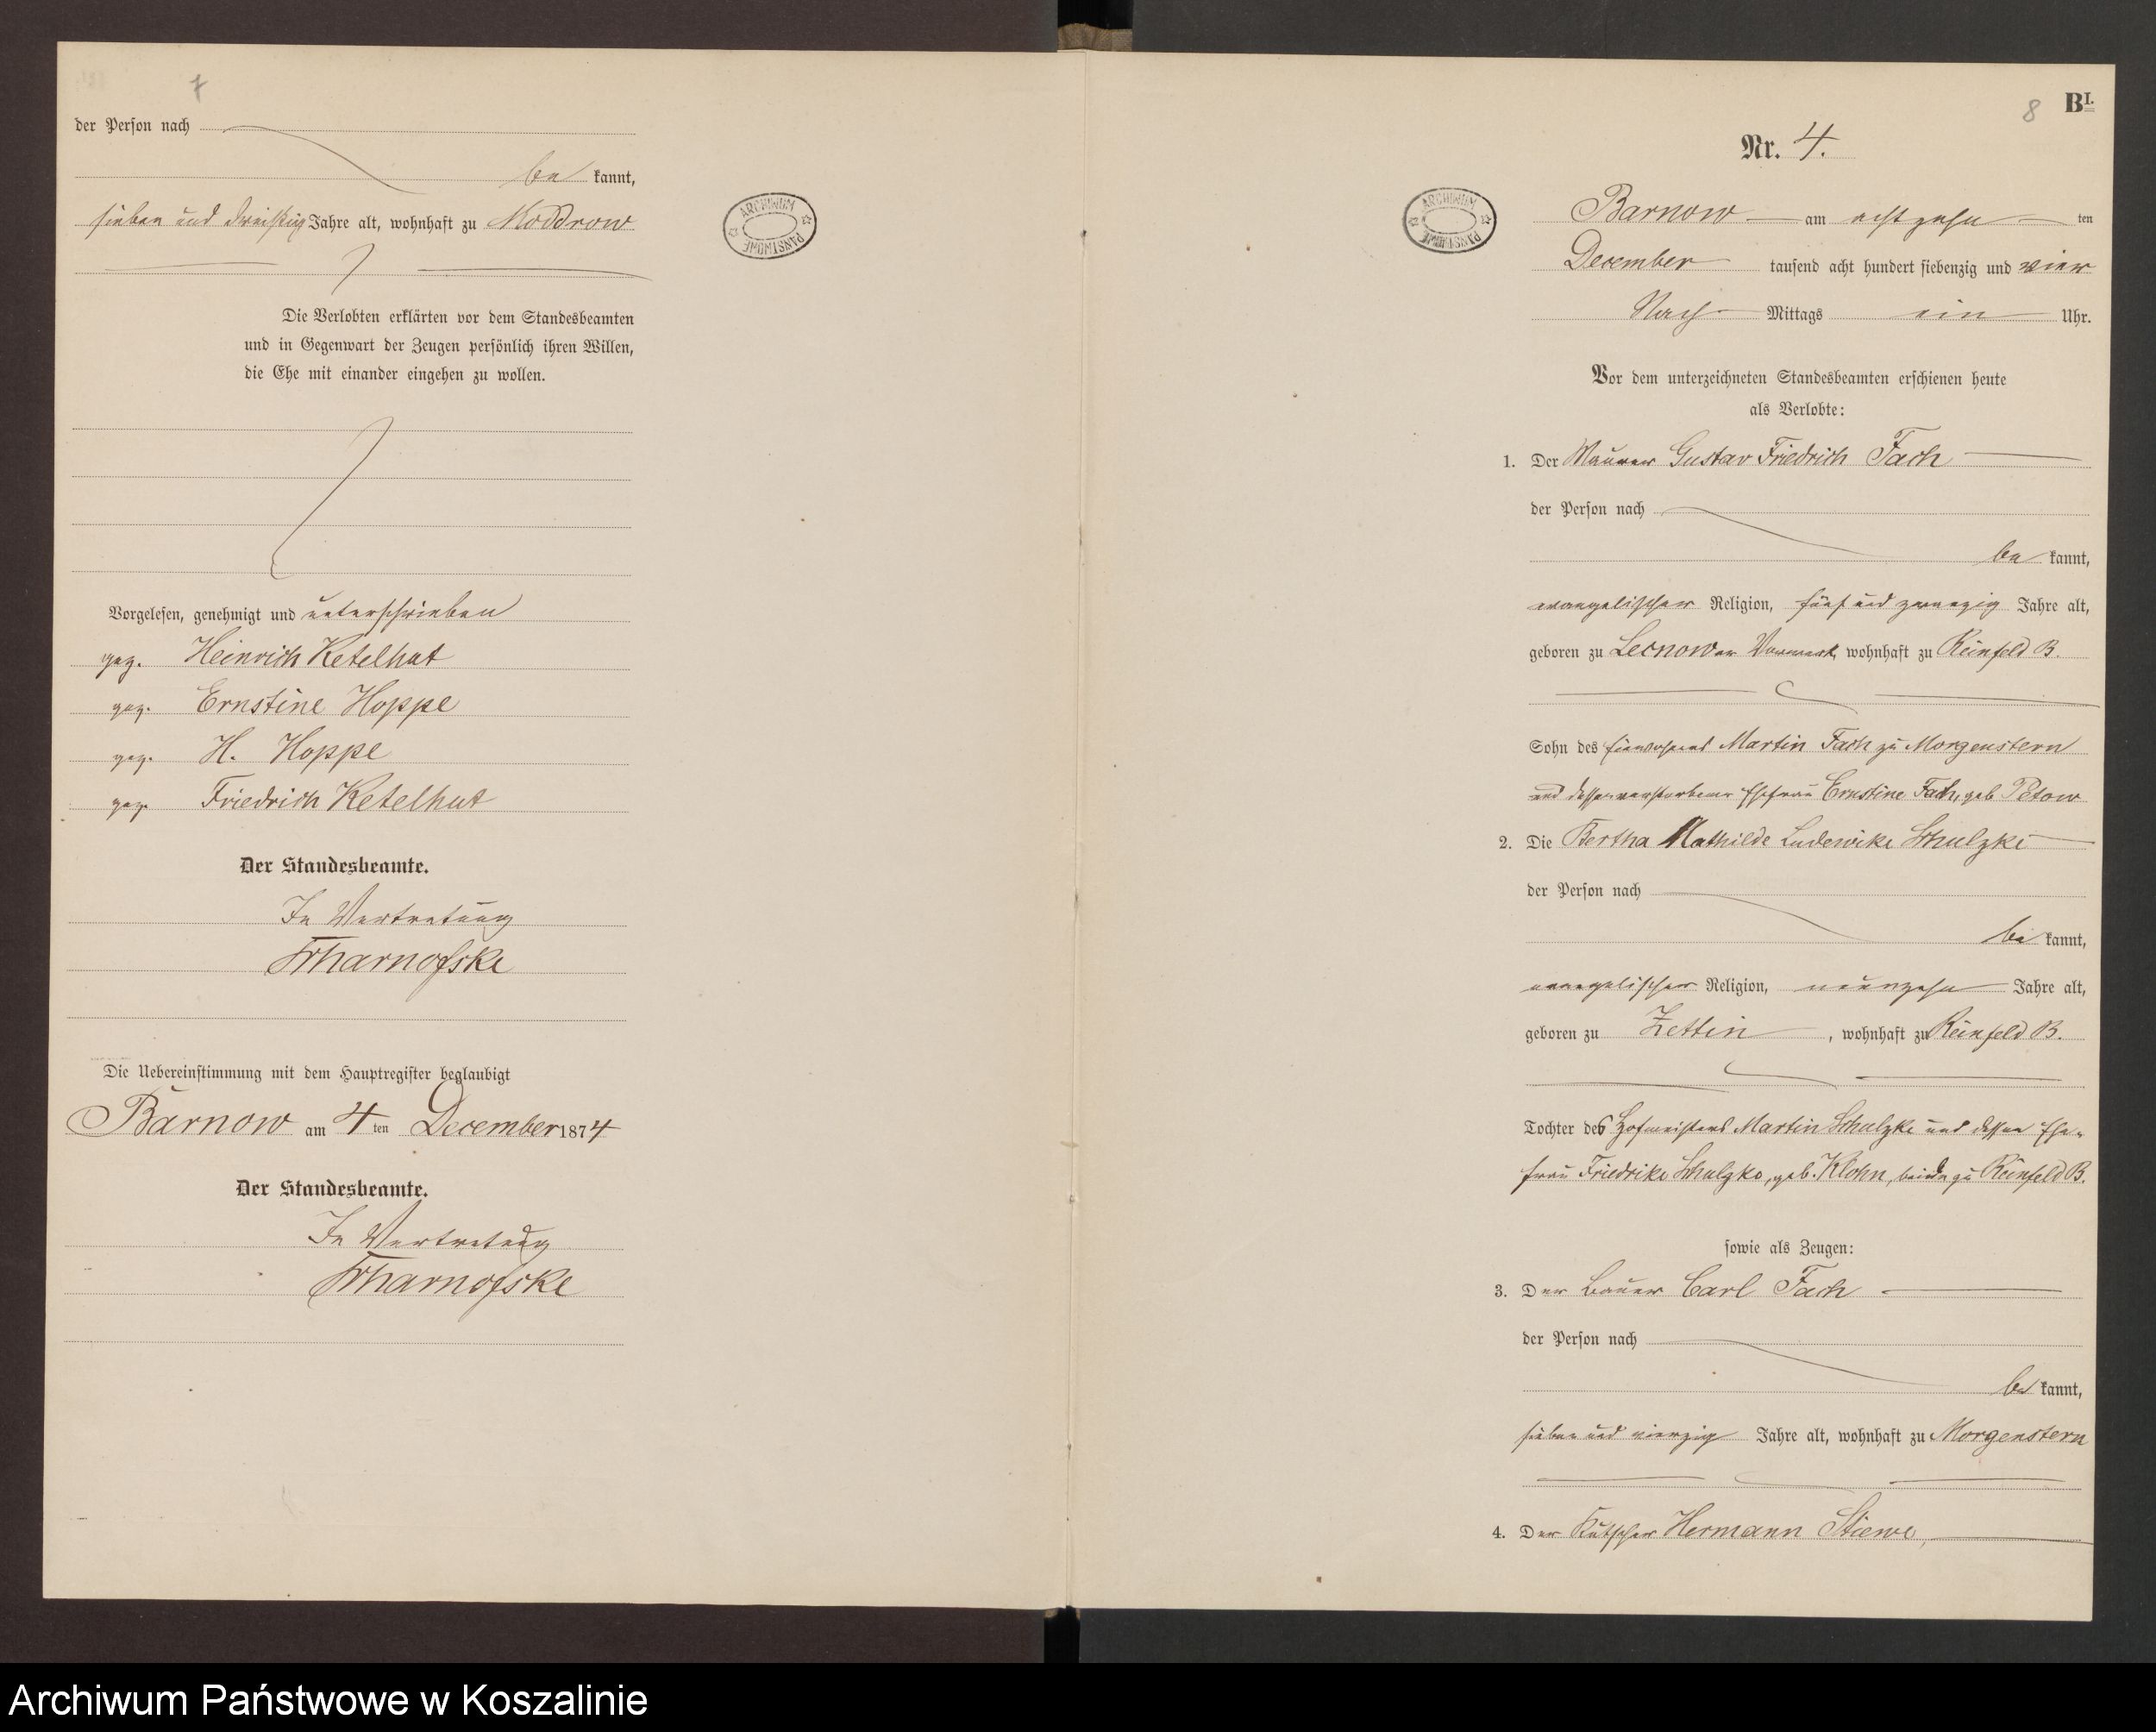 7
der Person nach
be kannt,
sieben und dreißig Jahre alt, wohnhaft zu Noddrow
Die Verlobten erklärten vor dem Standesbeamten
und in Gegenwart der Zeugen persönlich ihren Willen,
die Ehe mit einander eingehen zu wollen.
Vorgelesen, genehmigt und unterschrieben
gez. Heinrich Ketelhut
gez. Ernstine Hoppe
gez. H. Hoppe
gez. Friedrich Ketelhut
Der Standesbeamte.
In Vertretung
Scharnofske
Die Uebereinstimmung mit dem Hauptregister beglaubigt
Barnow am 4 ten December 1874
Der Standesbeamte.
In Vertretung
Scharnofske
ARCHIWUM PAŃSTWOWE
8
BI.
Nr. 4.
ARCHIWUM PAŃSTWOWE
Barnow am achtzehn ten
December tausend acht hundert siebenzig und vier
Nach Mittags ein Uhr.
Vor dem unterzeichneten Standesbeamten erschienen heute
als Verlobte:
1. Der Maurer Gustav Friedrich Fach
der Person nach
be kannt,
evangelischer Religion, fünf und zwanzig Jahre alt,
geboren zu wohnhaft zu Reinfeld B.
Sohn des Einwohners Martin Fach zu Morgenstern
und dessen verstorbener Ehefrau Ernstine Fach, geb Petow
2. Die Bertha Mathilde Ludewike Schulzke
der Person nach
be kannt,
evangelischer Religion, neunzehn Jahre alt,
geboren zu Zettin, wohnhaft zu Reinfeld B.
Tochter des Hofmeisters Martin Schulzke und dessen Ehe-
frau Friedrike Schulzke, geb. Klohn, beide zu Reinfeld B.
sowie als Zeugen:
3. Der Bauer Carl Fach
der Person nach
be kannt,
sieben und vierzig Jahre alt, wohnhaft zu Morgenstern
4. Der Kutscher Hermann Stiewe,
Archiwum Państwowe w Koszalinie